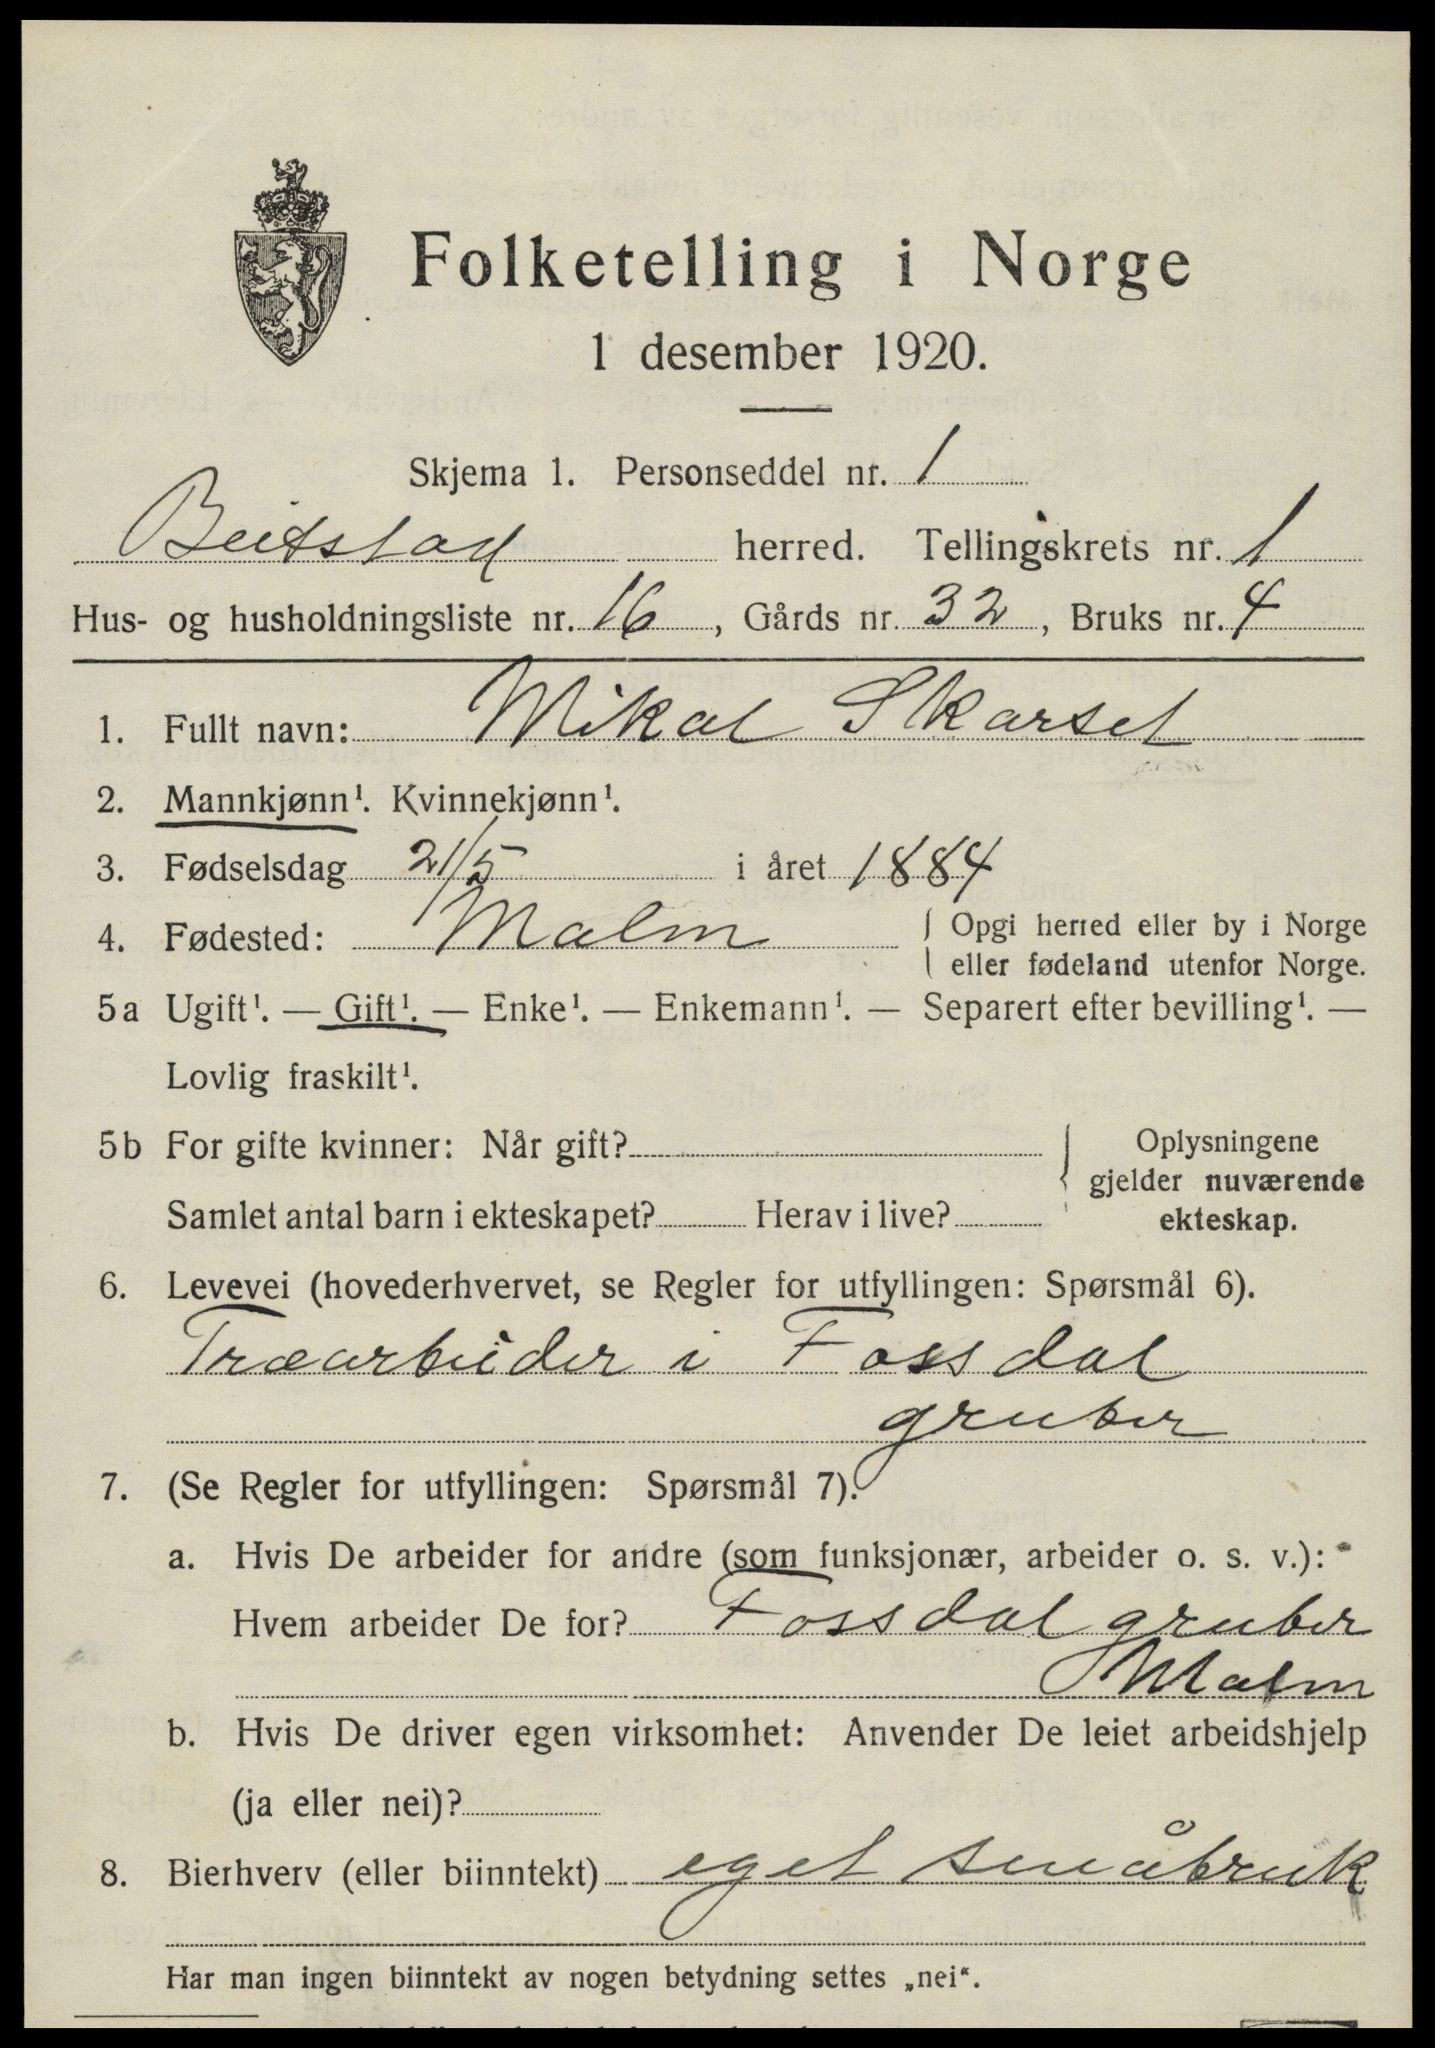 Folketelling i Norge
1 desember 1920.
Skjema 1. Personseddel nr. 1
Beitstad herred. Tellingskrets nr. 1
Hus- og husholdningsliste nr. 16, Gårds nr. 32, Bruks nr. 4
1. Fullt navn: Mikal Skarset
2. Mannkjønn¹. Kvinnekjønn¹.
3. Fødselsdag 21/5 i året 1884
4. Fødested: Malm { Opgi herred eller by i Norge
eller fødeland utenfor Norge.
5a Ugift¹. — Gift¹. — Enke¹. — Enkemann¹. — Separert efter bevilling¹. —
Lovlig fraskilt¹.
5b For gifte kvinner: Når gift? { Oplysningene
gjelder nuværende
Samlet antal barn i ekteskapet? Herav i live? ekteskap.
6. Levevei (hovederhvervet, se Regler for utfyllingen: Spørsmål 6).
Træarbeider i Fossdal
gruber
7. (Se Regler for utfyllingen: Spørsmål 7).
a. Hvis De arbeider for andre (som funksjonær, arbeider o. s. v.):
Hvem arbeider De for? Fossdal gruber
Malm
b. Hvis De driver egen virksomhet: Anvender De leiet arbeidshjelp
(ja eller nei)?
8. Bierhverv (eller biinntekt) eget småbruk
Har man ingen biinntekt av nogen betydning settes „nei“.